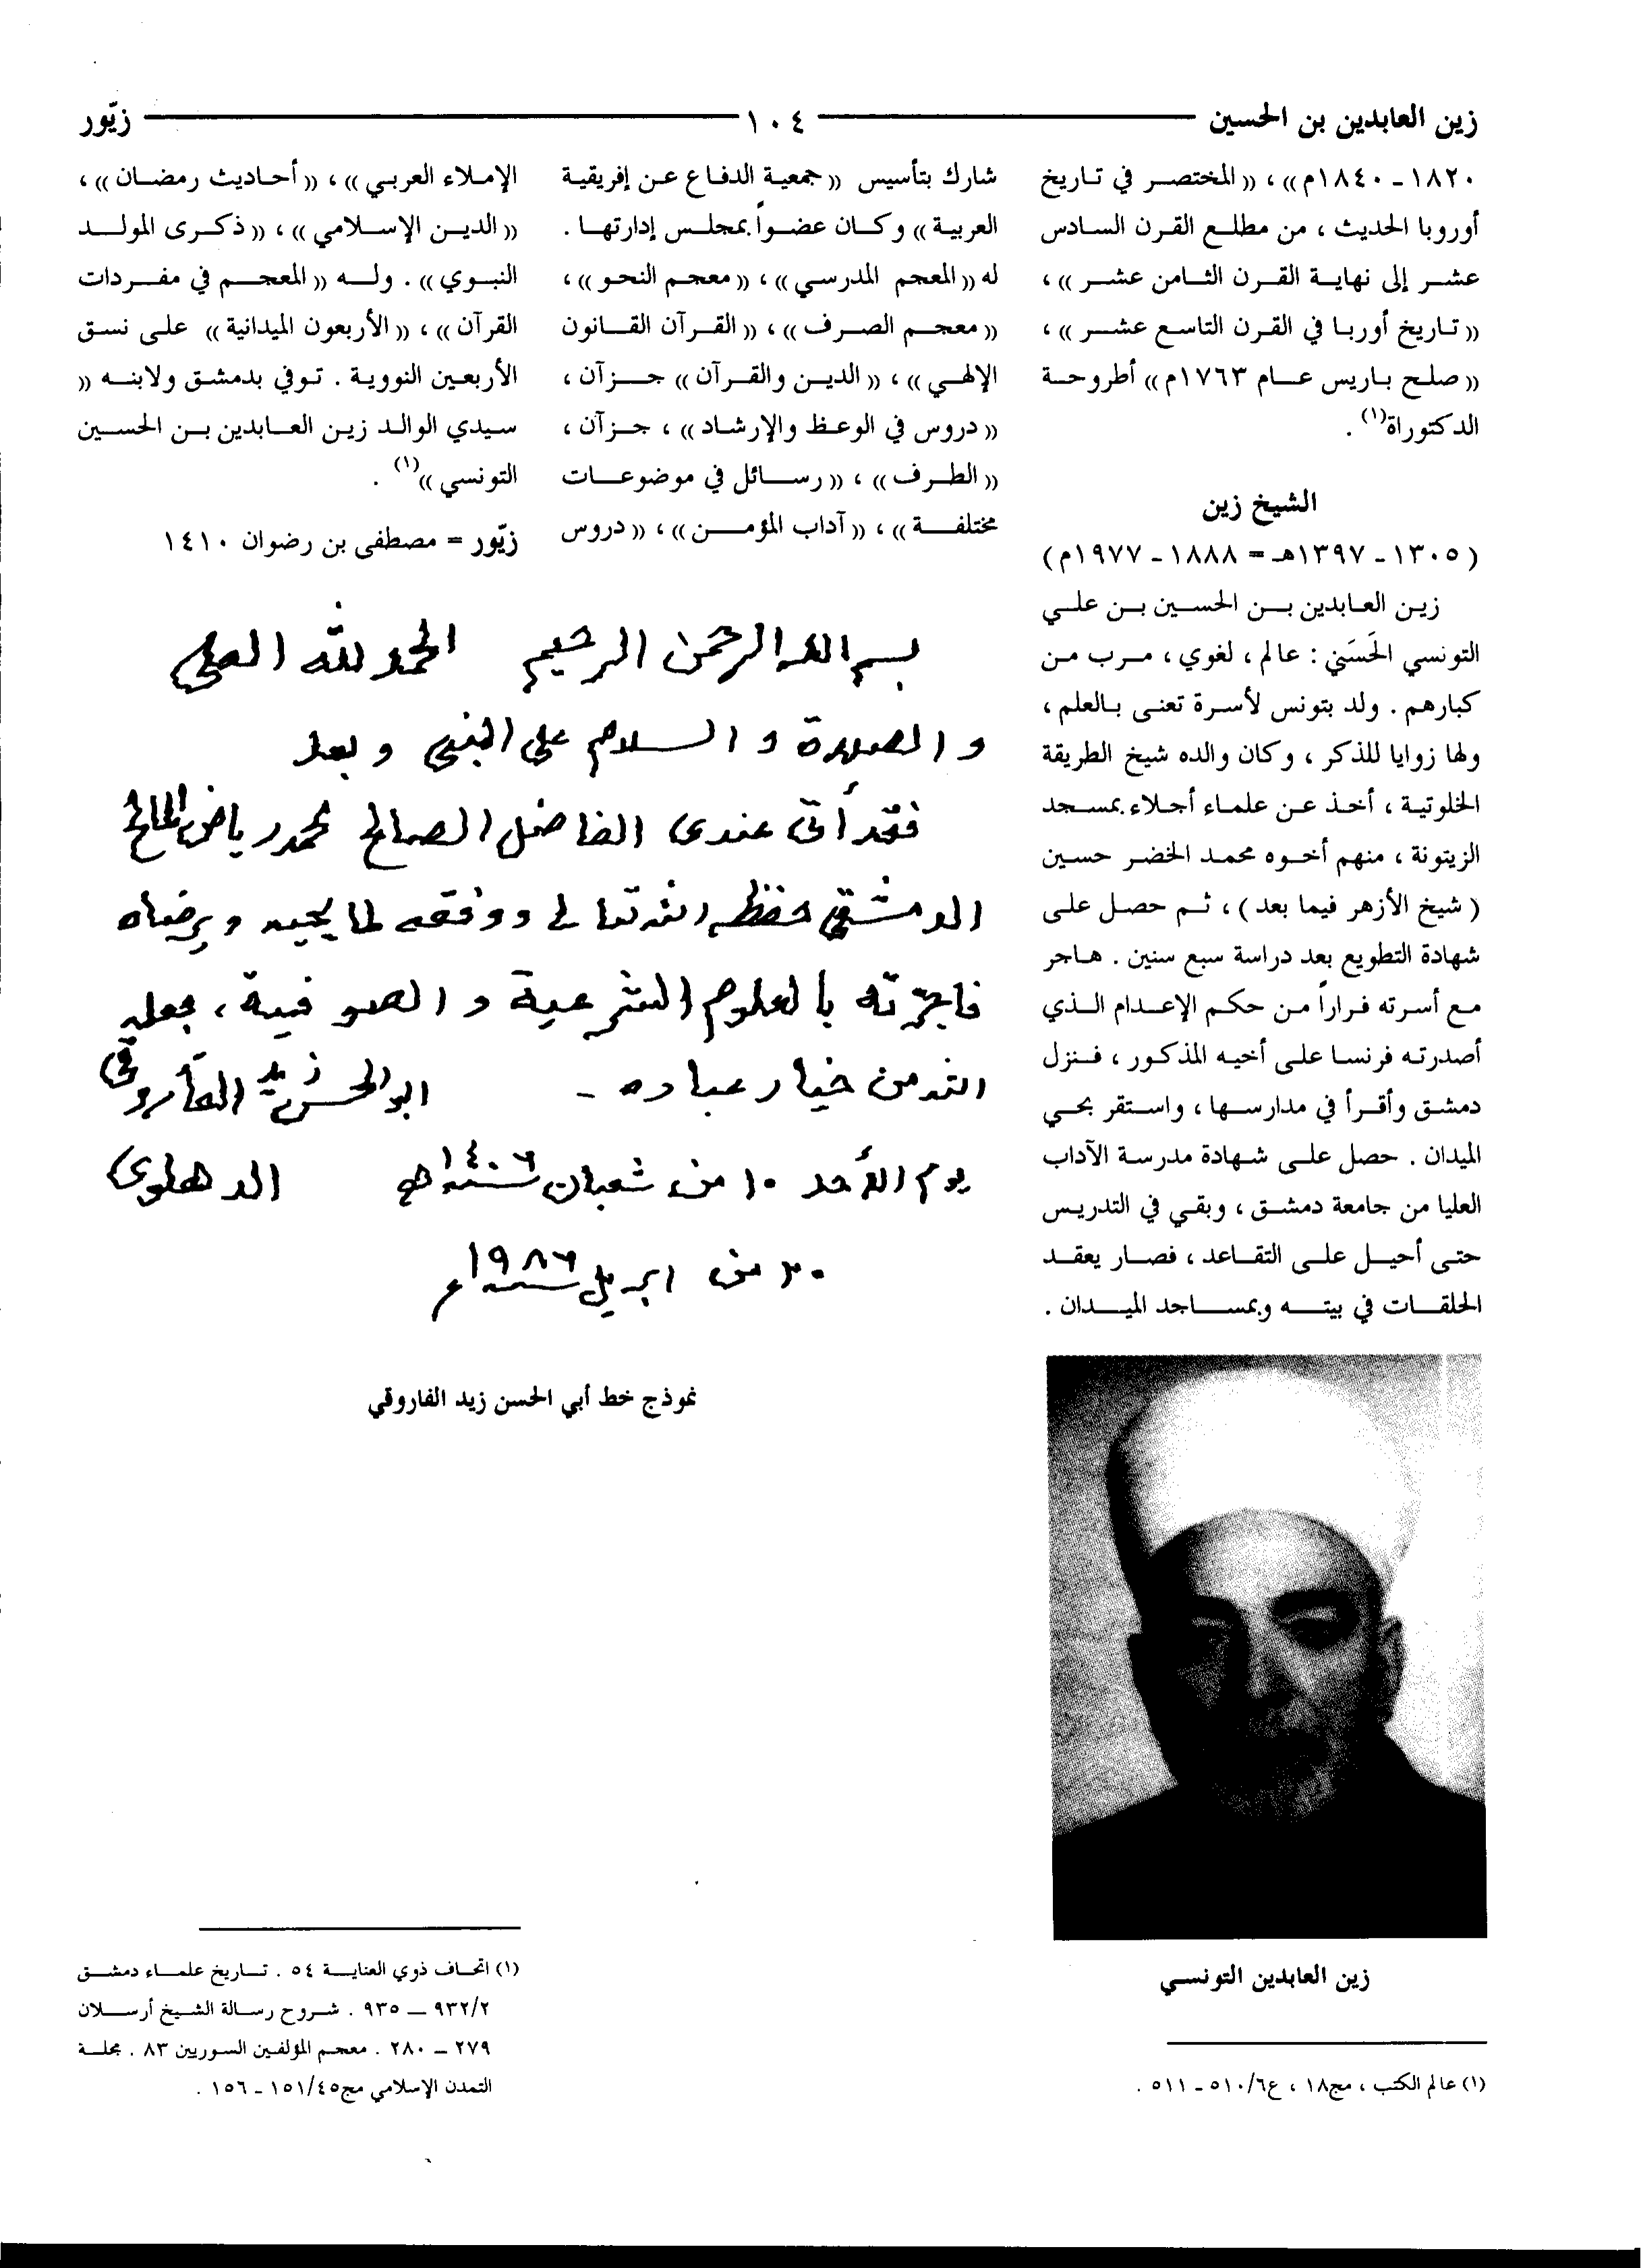 زين العابدين بن الحسين
١٠٤
زيّور
١٨٢٠ - ١٨٤٠م » ، « المختصر في تاريخ
أوروبا الحديث ، من مطلع القرن السادس
عشر إلى نهاية القرن الثامن عشر » ،
« تاريخ أوربا في القرن التاسع عشر » ،
« صلح باريس عام ١٧٦٣م » أطروحة
الدكتوراة(١) .
الشيخ زين
( ١٣٠٥ - ١٣٩٧هـ = ١٨٨٨ - ١٩٧٧م )
زين العابدين بن الحسين بن علي
التونسي الحَسَني : عالم ، لغوي ، مرب من
كبارهم . ولد بتونس لأسرة تعنى بالعلم ،
ولها زوايا للذكر ، وكان والده شيخ الطريقة
الخلوتية ، أخذ عن علماء أجلاء بمسجد
الزيتونة ، منهم أخوه محمد الخضر حسين
( شيخ الأزهر فيما بعد ) ، ثم حصل على
شهادة التطويع بعد دراسة سبع سنين . هاجر
مع أسرته فراراً من حكم الإعدام الذي
أصدرته فرنسا على أخيه المذكور ، فنزل
دمشق وأقرأ في مدارسها ، واستقر بحي
الميدان . حصل على شهادة مدرسة الآداب
العليا من جامعة دمشق ، وبقي في التدريس
حتى أحيل على التقاعد ، فصار يعقد
الحلقات في بيته وبمساجد الميدان .
زين العابدين التونسي
(١) عالم الكتب ، مج١٨ ، ع٥١٠/٦ - ٥١١ .
شارك بتأسيس « جمعية الدفاع عن إفريقية
العربية » وكان عضواً بمجلس إدارتها .
له « المعجم المدرسي » ، « معجم النحو » ،
« معجم الصرف » ، « القرآن القانون
الإلهي » ، « الدين والقرآن » جزآن ،
« دروس في الوعظ والإرشاد » ، جزآن ،
« الطرف » ، « رسائل في موضوعات
مختلفة » ، « آداب المؤمن » ، « دروس
الإملاء العربي » ، « أحاديث رمضان » ،
« الدين الإسلامي » ، « ذكرى المولد
النبوي » . وله « المعجم في مفردات
القرآن » ، « الأربعون الميدانية » على نسق
الأربعين النووية . توفي بدمشق ولابنه «
سيدي الوالد زين العابدين بن الحسين
التونسي »(١) .
زيّور = مصطفى بن رضوان ١٤١٠
بسم الله الرحمن الرحيم الحمد لله العلي
والصلاة والسلام على النبي وبعد
فقد أتى عندى الفاضل الصالح محمد رياض المالح
الدمشقي حفظه الله تعالى ووفقه لما يحبه ويرضاه
فاجزته بالعلوم الشرعية والصوفية ، جعله
الله من خيار عباده - ابو الحسن زيد الفاروقي
يوم الأحد ١٠ من شعبان سنة ١٤٠٦ هـ الدهلوى
٢٠ من ابريل سنة ١٩٨٦ م
نموذج خط أبي الحسن زيد الفاروقي
(١) اتحاف ذوي العناية ٥٤ . تاريخ علماء دمشق
٩٣٢/٢ – ٩٣٥ . شروح رسالة الشيخ أرسلان
٢٧٩ – ٢٨٠ . معجم المؤلفين السوريين ٨٣ . مجلة
التمدن الإسلامي مج١٥١/٤٥ - ١٥٦ .